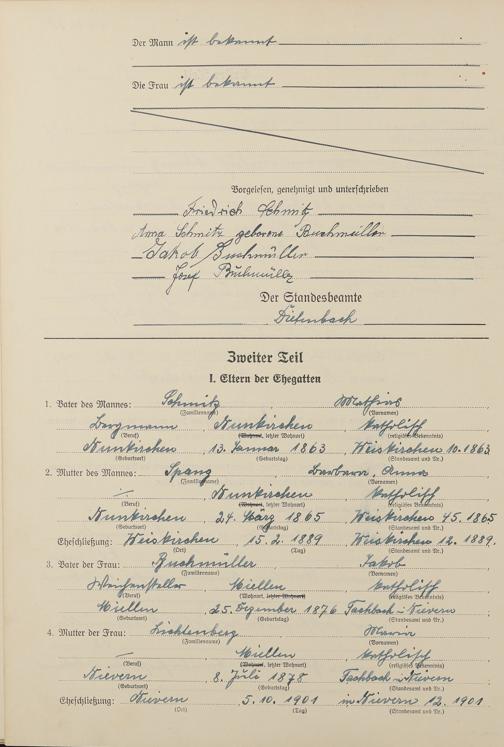 Der Mann ist bekannt
Die Frau ist bekannt
Vorgelesen, genehmigt und unterschrieben
Friedrich Schmitz
Anna Schmitz geborene Buchmüller
Jakob Buchmüller
Josef Buchmüller
Der Standesbeamte
Diefenbach
Zweiter Teil
I. Eltern der Ehegatten
1. Vater des Mannes: Schmitz Mathias
(Familienname) (Vornamen)
Bergmann Nunkirchen katholisch
(Beruf) (Wohnort, letzter Wohnort) (religiöses Bekenntnis)
Nunkirchen 13. Januar 1863 Weiskirchen 10.1863
(Geburtsort) (Geburtstag) (Standesamt und Nr.)
2. Mutter des Mannes: Spang Barbara, Anna
(Familienname) (Vornamen)
Nunkirchen katholisch
(Beruf) (Wohnort, letzter Wohnort) (religiöses Bekenntnis)
Nunkirchen 24. März 1865 Weiskirchen 45.1865
(Geburtsort) (Geburtstag) (Standesamt und Nr.)
Eheschließung: Weiskirchen 15.2.1889 Weiskirchen 12.1889.
(Ort) (Tag) (Standesamt und Nr.)
3. Vater der Frau: Buchmüller Jakob
(Familienname) (Vornamen)
Weichensteller Miellen katholisch
(Beruf) (Wohnort, letzter Wohnort) (religiöses Bekenntnis)
Miellen 25. Dezember 1876 Fachbach-Nievern
(Geburtsort) (Geburtstag) (Standesamt und Nr.)
4. Mutter der Frau: Lichtenberg Maria
(Familienname) (Vornamen)
Miellen katholisch
(Beruf) (Wohnort, letzter Wohnort) (religiöses Bekenntnis)
Nievern 8. Juli 1878 Fachbach-Nievern
(Geburtsort) (Geburtstag) (Standesamt und Nr.)
Eheschließung: Nievern 5.10.1901 in Nievern 12.1901
(Ort) (Tag) (Standesamt und Nr.)